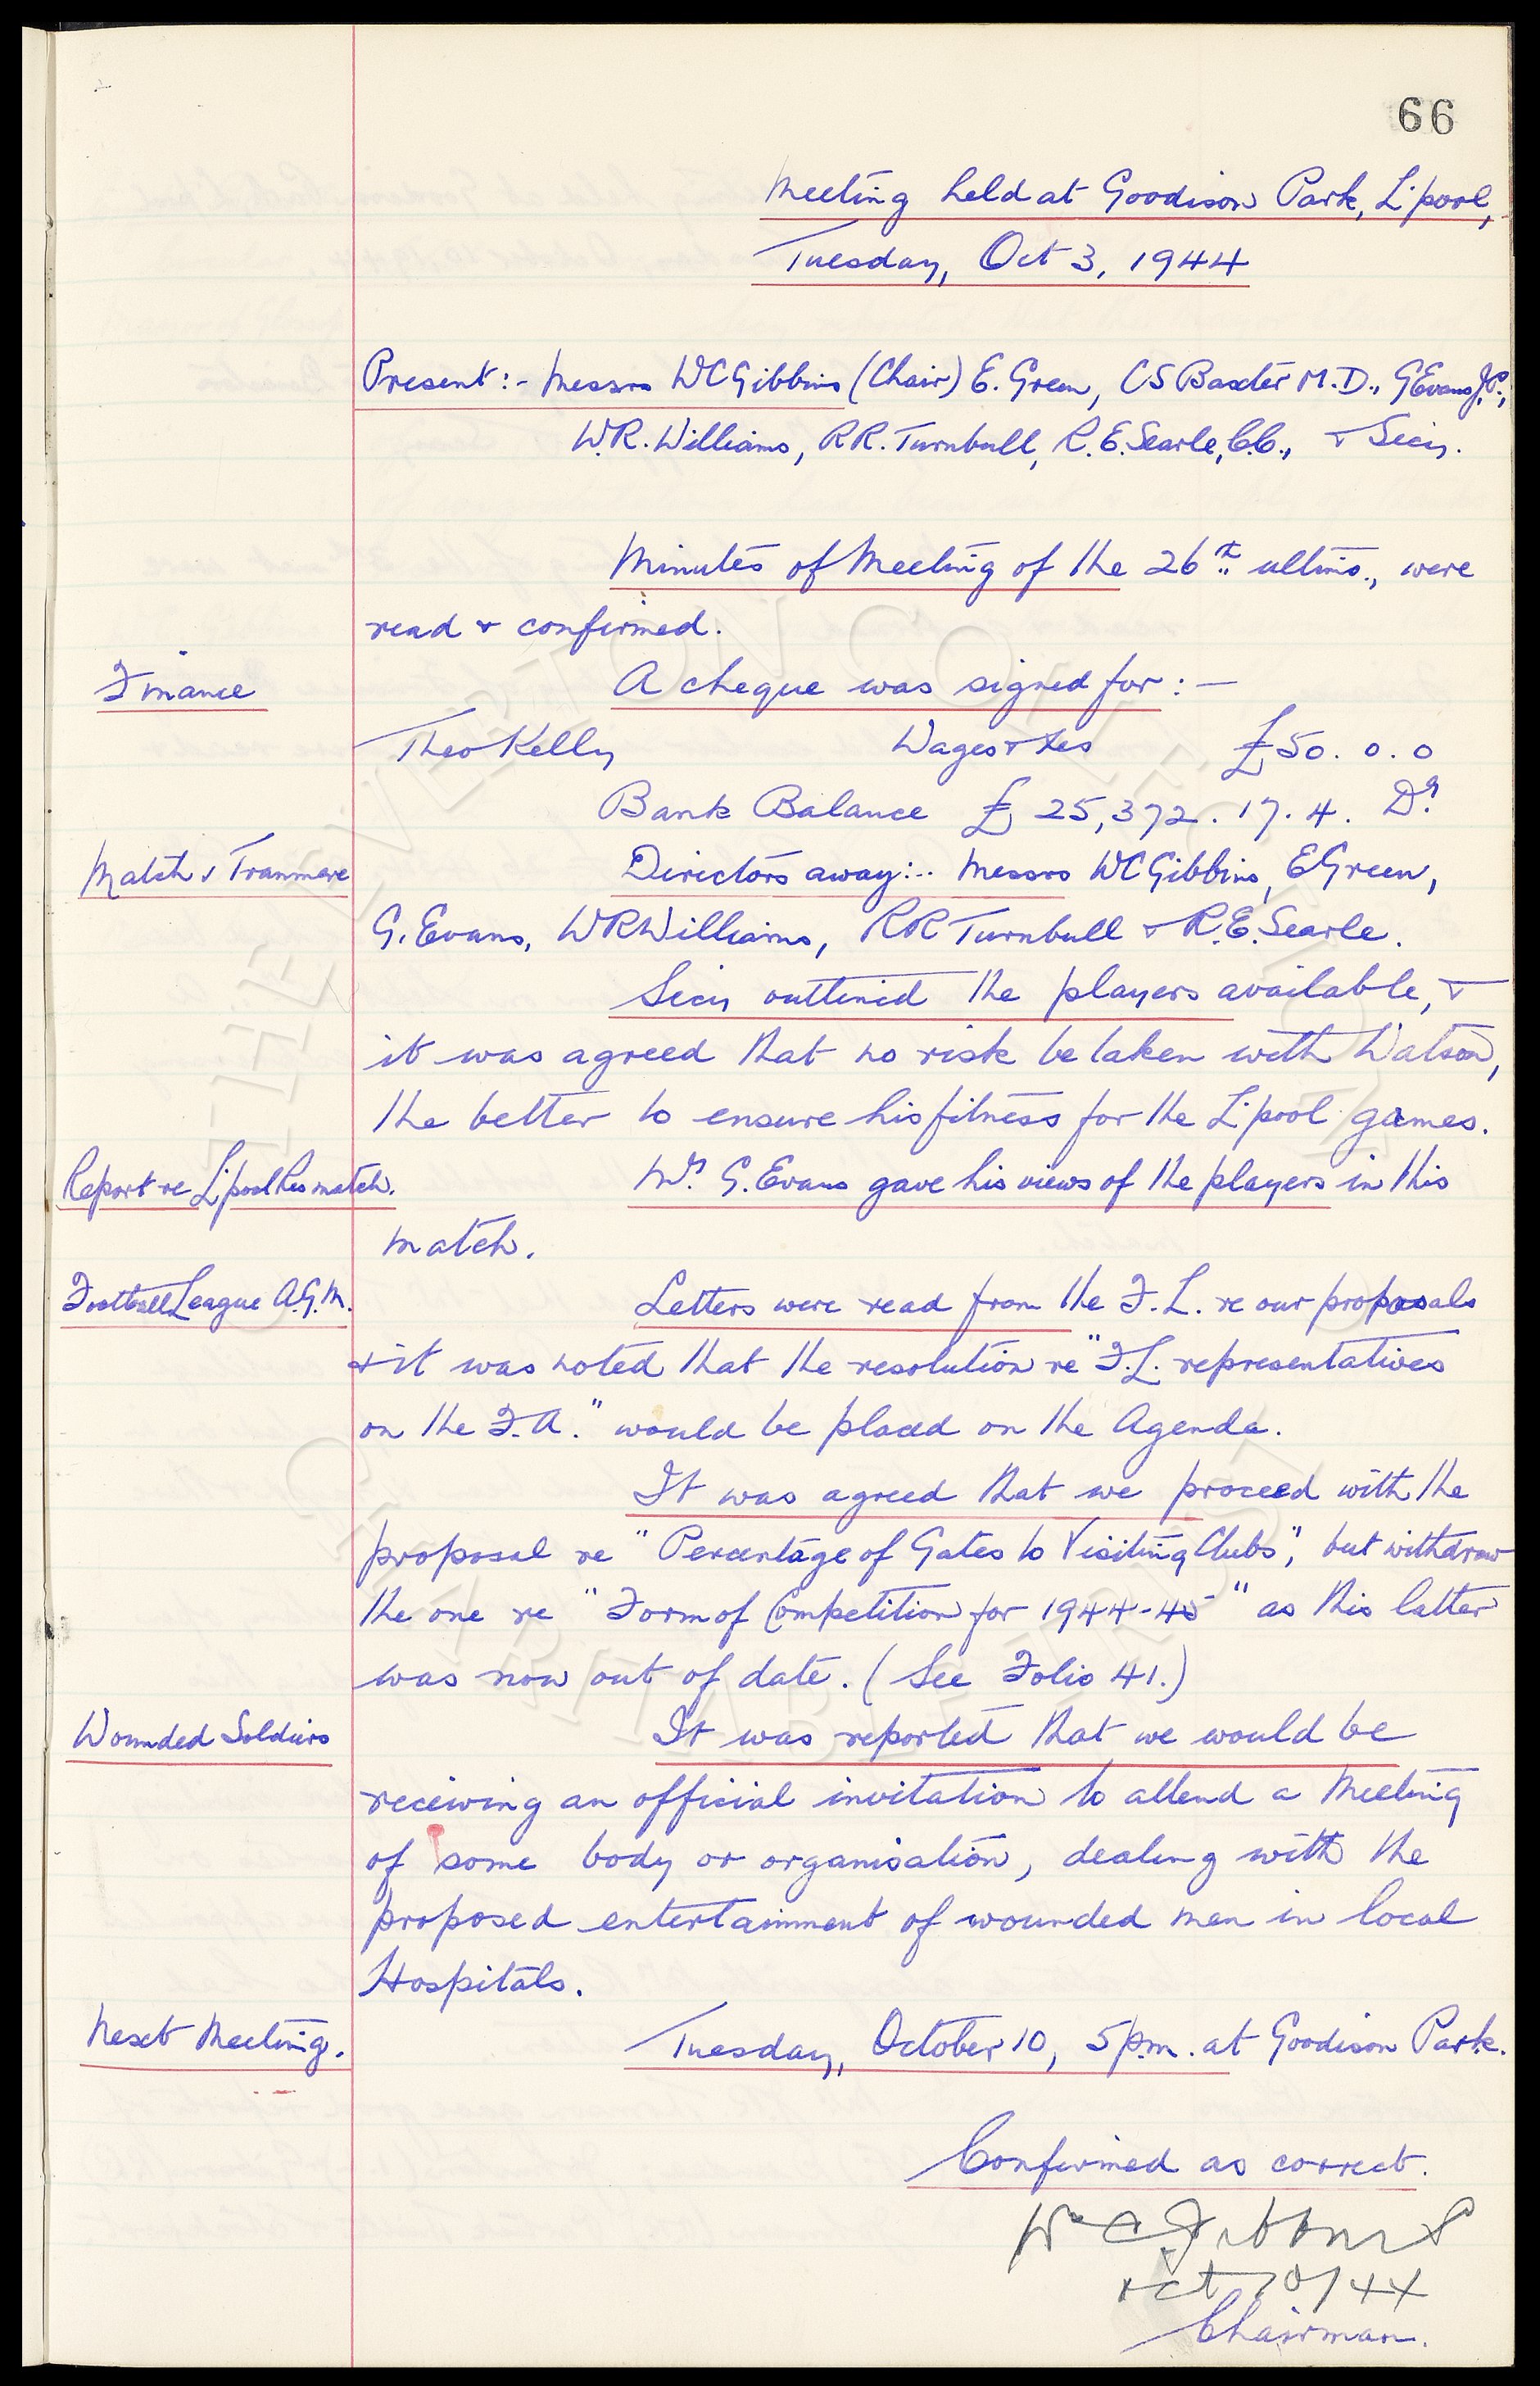 66
Meeting held at Goodison Park, L'pool,
Tuesday, Oct 3, 1944
Present:- Messrs WC Gibbins (Chair) E. Green, CS Baxter M.D., G Evans J.P.,
W.R. Williams, R R. Turnbull, R. E. Searle, C.C., & Secy.
Minutes of Meeting of the 26th ultimo., were
read & confirmed.
Finance A cheque was signed for:—
Theo Kelly Wages & Xes £50. 0. 0
Bank Balance £ 25,372. 17. 4. Dr
Match v Tranmere Directors away:.. Messrs WC Gibbins, E Green,
G. Evans, WR Williams, R R Turnbull & R. E. Searle.
Secy outlined the players available, &
it was agreed that no risk be taken with Watson,
the better to ensure his fitness for the L'pool games.
Report re L'pool Res match. Mr. G. Evans gave his views of the players in this
match.
Football League A.G.M. Letters were read from the F. L. re our proposals
& it was noted that the resolution re "F.L. representatives
on the F.A." would be placed on the Agenda.
It was agreed that we proceed with the
proposal re "Percentage of Gates to Visiting Clubs", but withdraw
the one re "Form of Competition for 1944-45" as this latter
was now out of date. (See Folio 41.)
Wounded Soldiers It was reported that we would be
receiving an official invitation to attend a Meeting
of some body or organisation, dealing with the
proposed entertainment of wounded men in local
Hospitals.
Next Meeting. Tuesday, October 10, 5 p.m. at Goodison Park.
Confirmed as correct.
Wm C Gibbins
Oct 10/44
Chairman.
THE EVERTON COLLECTION
CHARITABLE TRUST